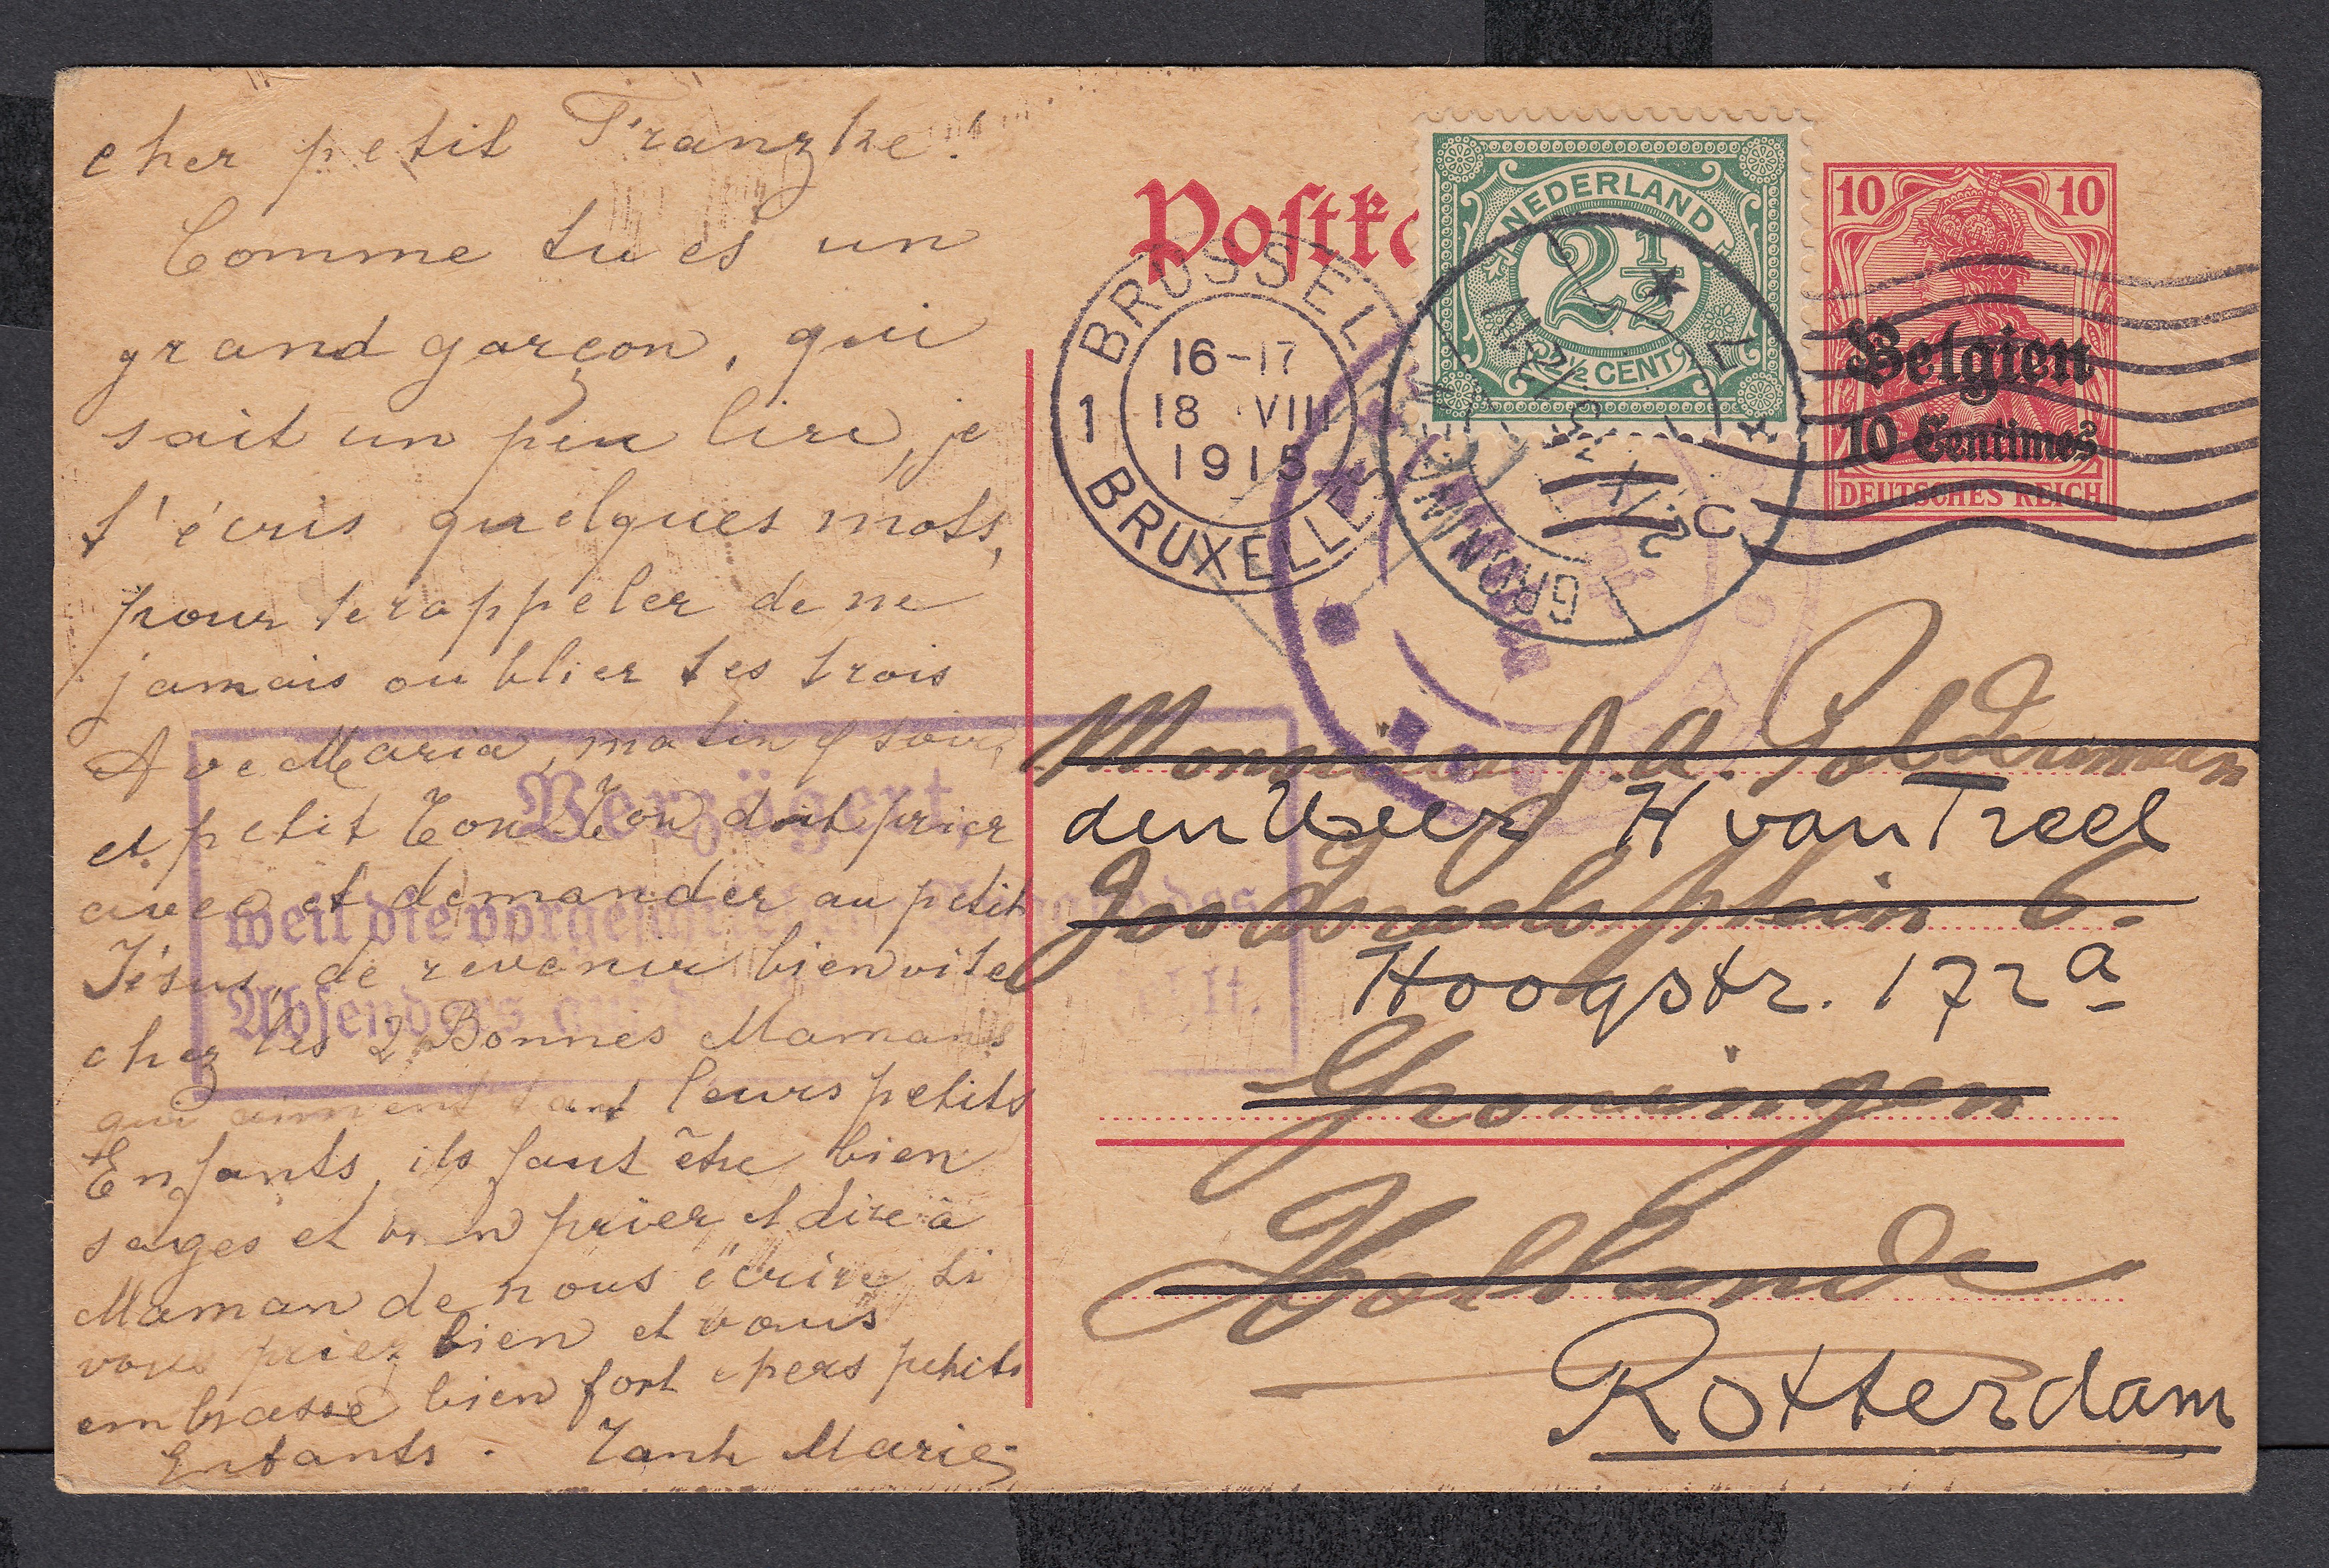 cher petit Franzke!
Comme tu es un
grand garçon, qui
sait un peu lire, je
t'écris quelques mots,
pour te rappeler de ne
jamais oublier tes trois
Ave Maria, matin et soir,
et petit Ton Ton doit prier
avec et demander au petit
Jésus, de revenir bien vite
chez les 2 Bonnes Mamans
qui aiment tant leurs petits
Enfants, ils faut être bien
sages et bien prier et dire à
Maman de nous écrire si
vous priez bien et vous
embrasse bien fort chers petits
Enfants. Tante Marie
Postka
BRUSSEL
16-17
18 VIII
1915
1
BRUXELLES
NEDERLAND
2½
2½ CENT
GRONINGEN
10 10
Belgien
10 Centimes
DEUTSCHES REICH
Verzögert,
weil die vorgeschriebene Angabe des
Absenders auf der
Monsieur J. A. Polderman
den Heer H van Treel
6.
Hoogstr. 172a
Groningen
Hollande
Rotterdam